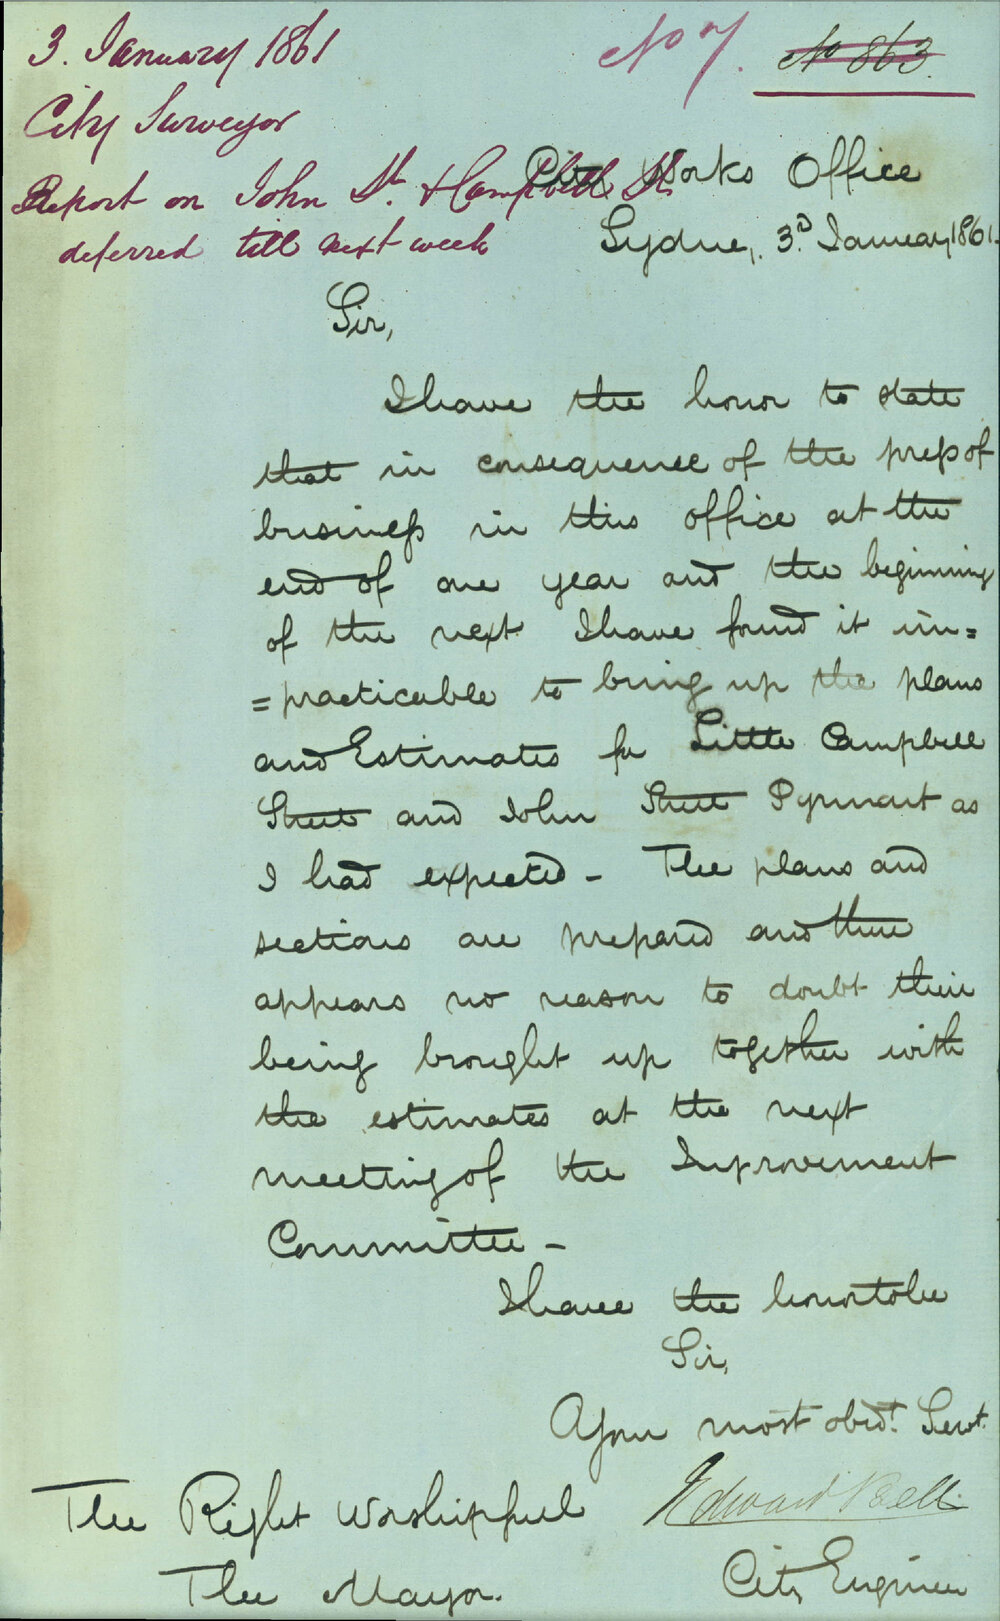 3. January 1861
No 7.
No 863.
City Surveyor
Report on John St. & Campbell St.
deferred till next week
City Works Office
Sydney, 3rd January 1861.
Sir,
I have the honor to state
that in consequence of the press of
business in this office at the
end of one year and the beginning
of the next I have found it im=
=practicable to bring up the plans
and Estimates for Little Campbell
Street and John Street Pyrmont as
I had expected - The plans and
sections are prepared and there
appears no reason to doubt their
being brought up together with
the estimates at the next
meeting of the Improvement
Committee -
I have the honor to be
Sir,
Your most obedt. Servt.
Edward Bell
City Engineer
The Right Worshipful
The Mayor.